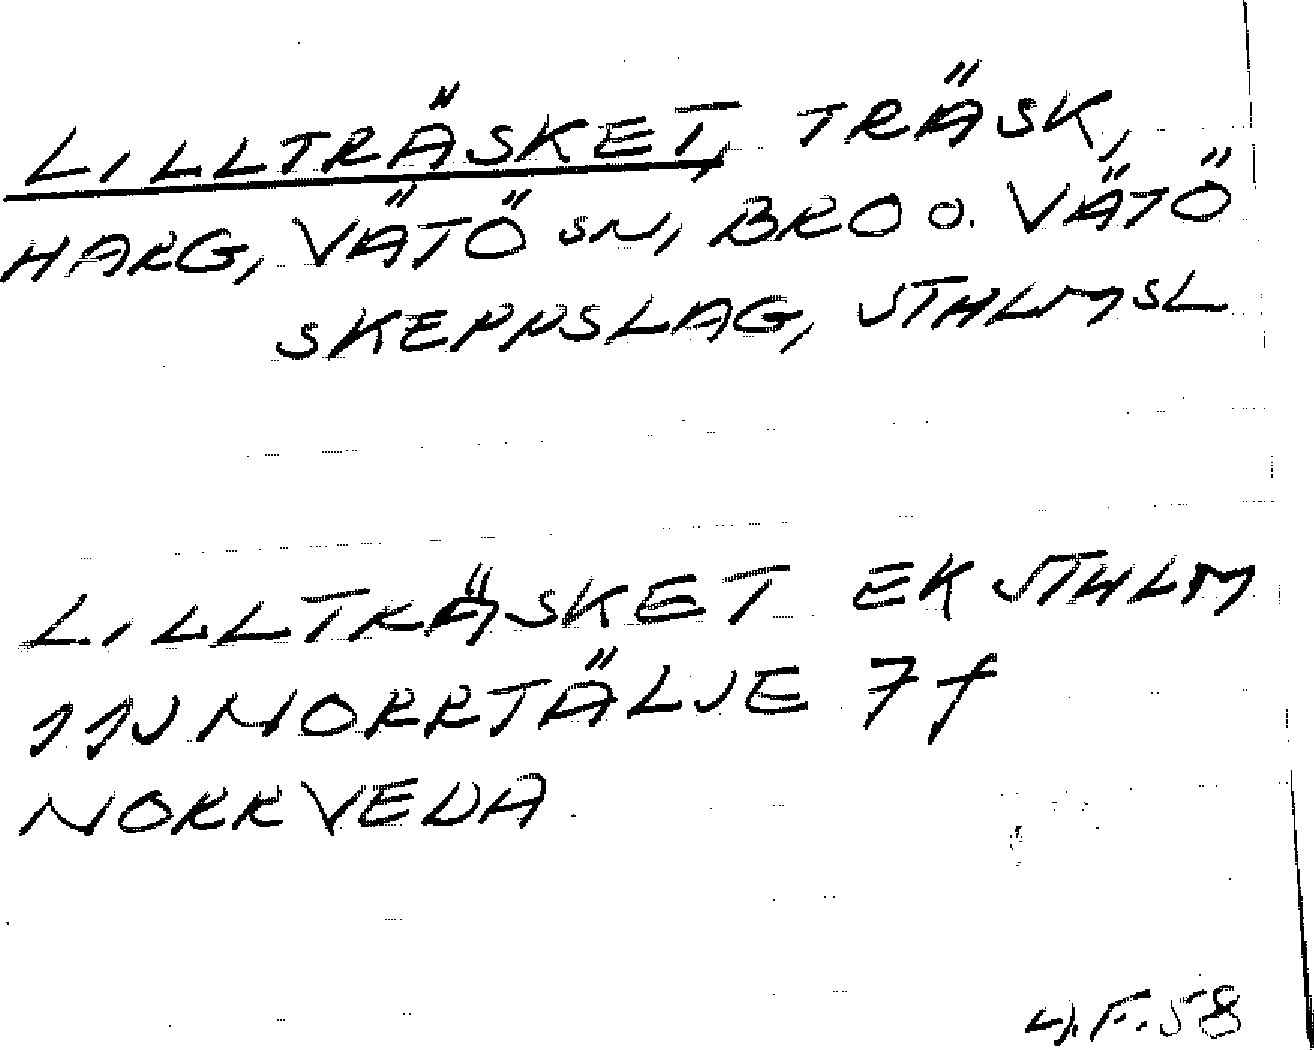 LILLTRÄSKET, TRÄSK,
HARG, VÄTÖ SN, BRO O. VÄTÖ
SKEPPSLAG, STHLMSL
LILLTRÄSKET EK STHLM
11J NORRTÄLJE 7f
NORRVEDA
4.F.58